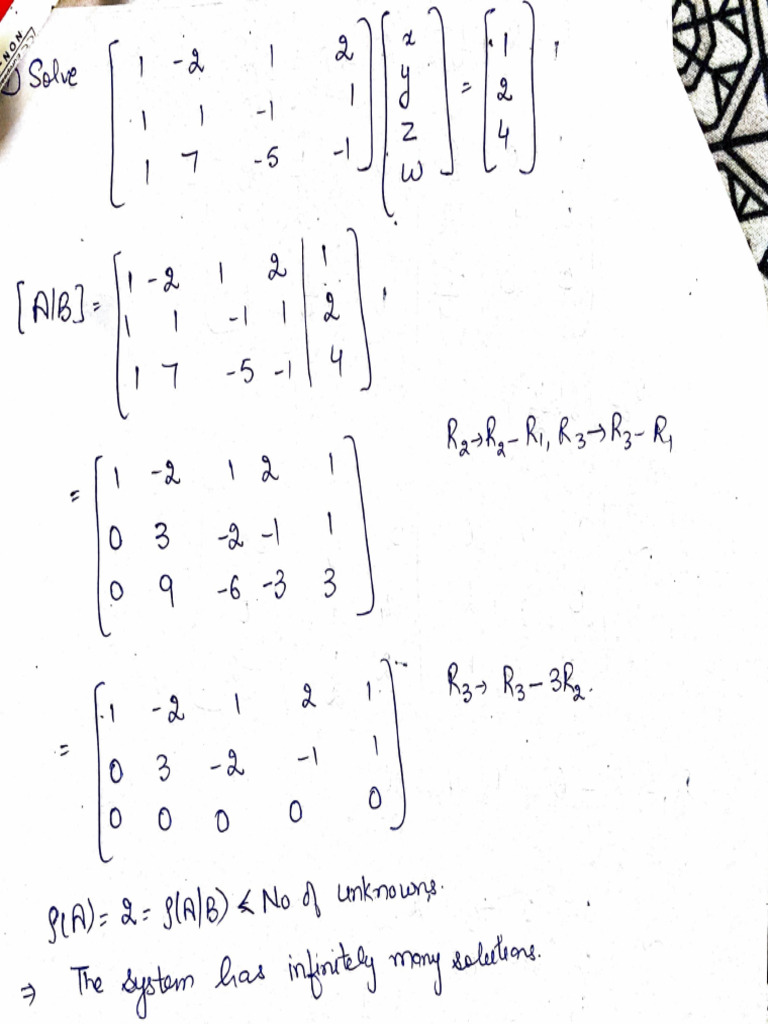 ) Solve [1 -2 1 2; 1 1 -1 1; 1 7 -5 -1] [x; y; z; w] = [1; 2; 4]
[A|B] = [1 -2 1 2 | 1; 1 1 -1 1 | 2; 1 7 -5 -1 | 4]
R₂→R₂-R₁, R₃→R₃-R₁
= [1 -2 1 2 1; 0 3 -2 -1 1; 0 9 -6 -3 3]
R₃→ R₃-3R₂.
= [1 -2 1 2 1; 0 3 -2 -1 1; 0 0 0 0 0]
ρ(A) = 2 = ρ(A|B) < No of unknowns.
⇒ The system has infinitely many solutions.